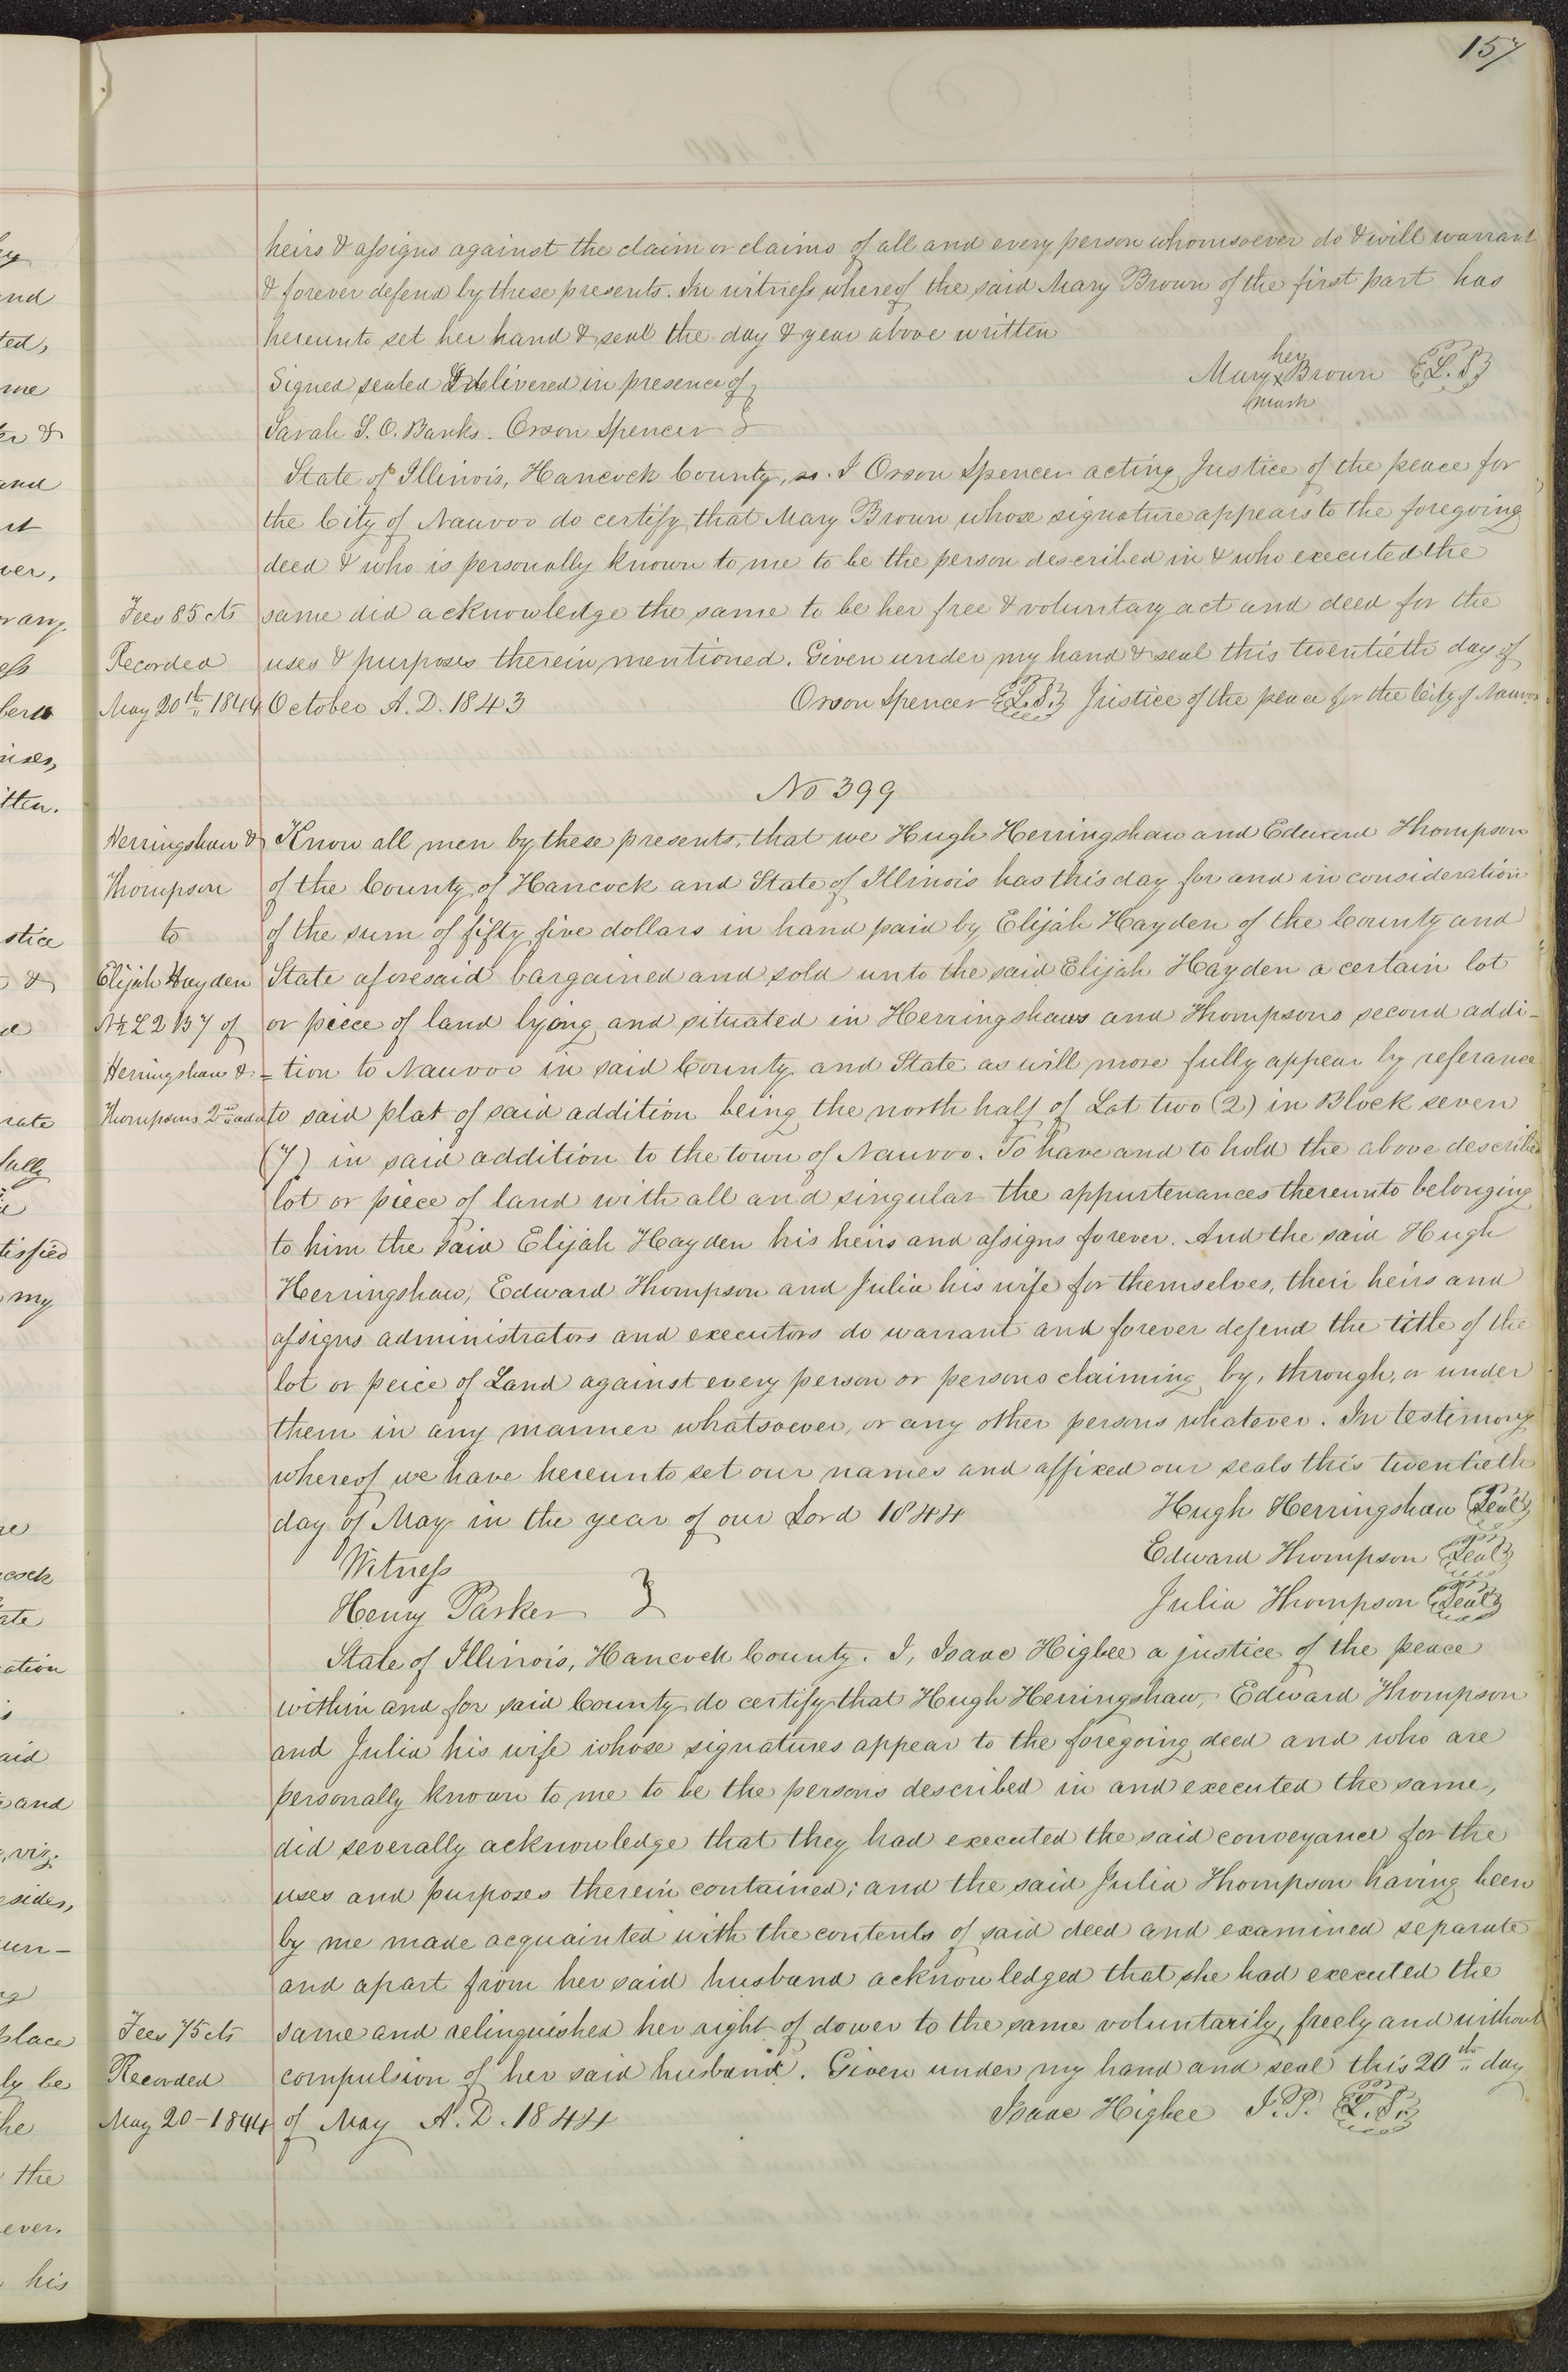 157
heirs & assigns against the claim or claims of all and every person whomsoever do & will warrant
& forever defend by these presents. In witness whereof the said Mary Brown of the first part has
hereunto set her hand & seal the day & year above written
her
Signed sealed & delivered in presence of }
Mary X Brown {L.S.}
mark
Sarah S. O. Banks. Orson Spencer }
State of Illinois, Hancock County, ss. I Orson Spencer acting Justice of the peace for
the City of Nauvoo do certify that Mary Brown whose signature appears to the foregoing
deed & who is personally known to me to be the person described in & who executed the
Fees 85 cts
same did acknowledge the same to be her free & voluntary act and deed for the
Recorded
uses & purposes therein mentioned. Given under my hand & seal this twentieth day of
May 20th 1844
October A.D. 1843
Orson Spencer {L.S.} Justice of the peace for the City of Nauvoo
No 399
Herringshaw &
Know all men by these presents, that we Hugh Herringshaw and Edward Thompson
Thompson
of the County of Hancock and State of Illinois has this day for and in consideration
to
of the sum of fifty five dollars in hand paid by Elijah Hayden of the County and
Elijah Hayden
State aforesaid bargained and sold unto the said Elijah Hayden a certain lot
N½ L 2 B 7 of
or piece of land lying and situated in Herringshaws and Thompsons second addi-
Herringshaw &
=tion to Nauvoo in said County and State as will more fully appear by referance
Thompsons 2nd add
to said plat of said addition being the north half of Lot two (2) in Block seven
(7) in said addition to the town of Nauvoo. To have and to hold the above described
lot or piece of land with all and singular the appurtenances thereunto belonging
to him the said Elijah Hayden his heirs and assigns forever. And the said Hugh
Herringshaw, Edward Thompson and Julia his wife for themselves, their heirs and
assigns administrators and executors do warrant and forever defend the title of the
lot or peice of Land against every person or persons claiming by, through, or under
them in any manner whatsoever, or any other persons whatever. In testimony
whereof we have hereunto set our names and affixed our seals this twentieth
day of May in the year of our Lord 1844
Hugh Herringshaw {Seal}
Witness
Edward Thompson {Seal}
Henry Parker }
Julia Thompson {Seal}
State of Illinois, Hancock County. I, Isaac Higbee a justice of the peace
within and for said County do certify that Hugh Herringshaw, Edward Thompson
and Julia his wife whose signatures appear to the foregoing deed and who are
personally known to me to be the persons described in and executed the same,
did severally acknowledge that they had executed the said conveyance for the
uses and purposes therein contained; and the said Julia Thompson having been
by me made acquainted with the contents of said deed and examined separate
and apart from her said husband acknowledged that she had executed the
Fees 75 cts
same and relinquished her right of dower to the same voluntarily, freely and without
Recorded
compulsion of her said husband. Given under my hand and seal this 20th day
May 20-1844
of May A.D. 1844
Isaac Higbee J.P. {L.S.}